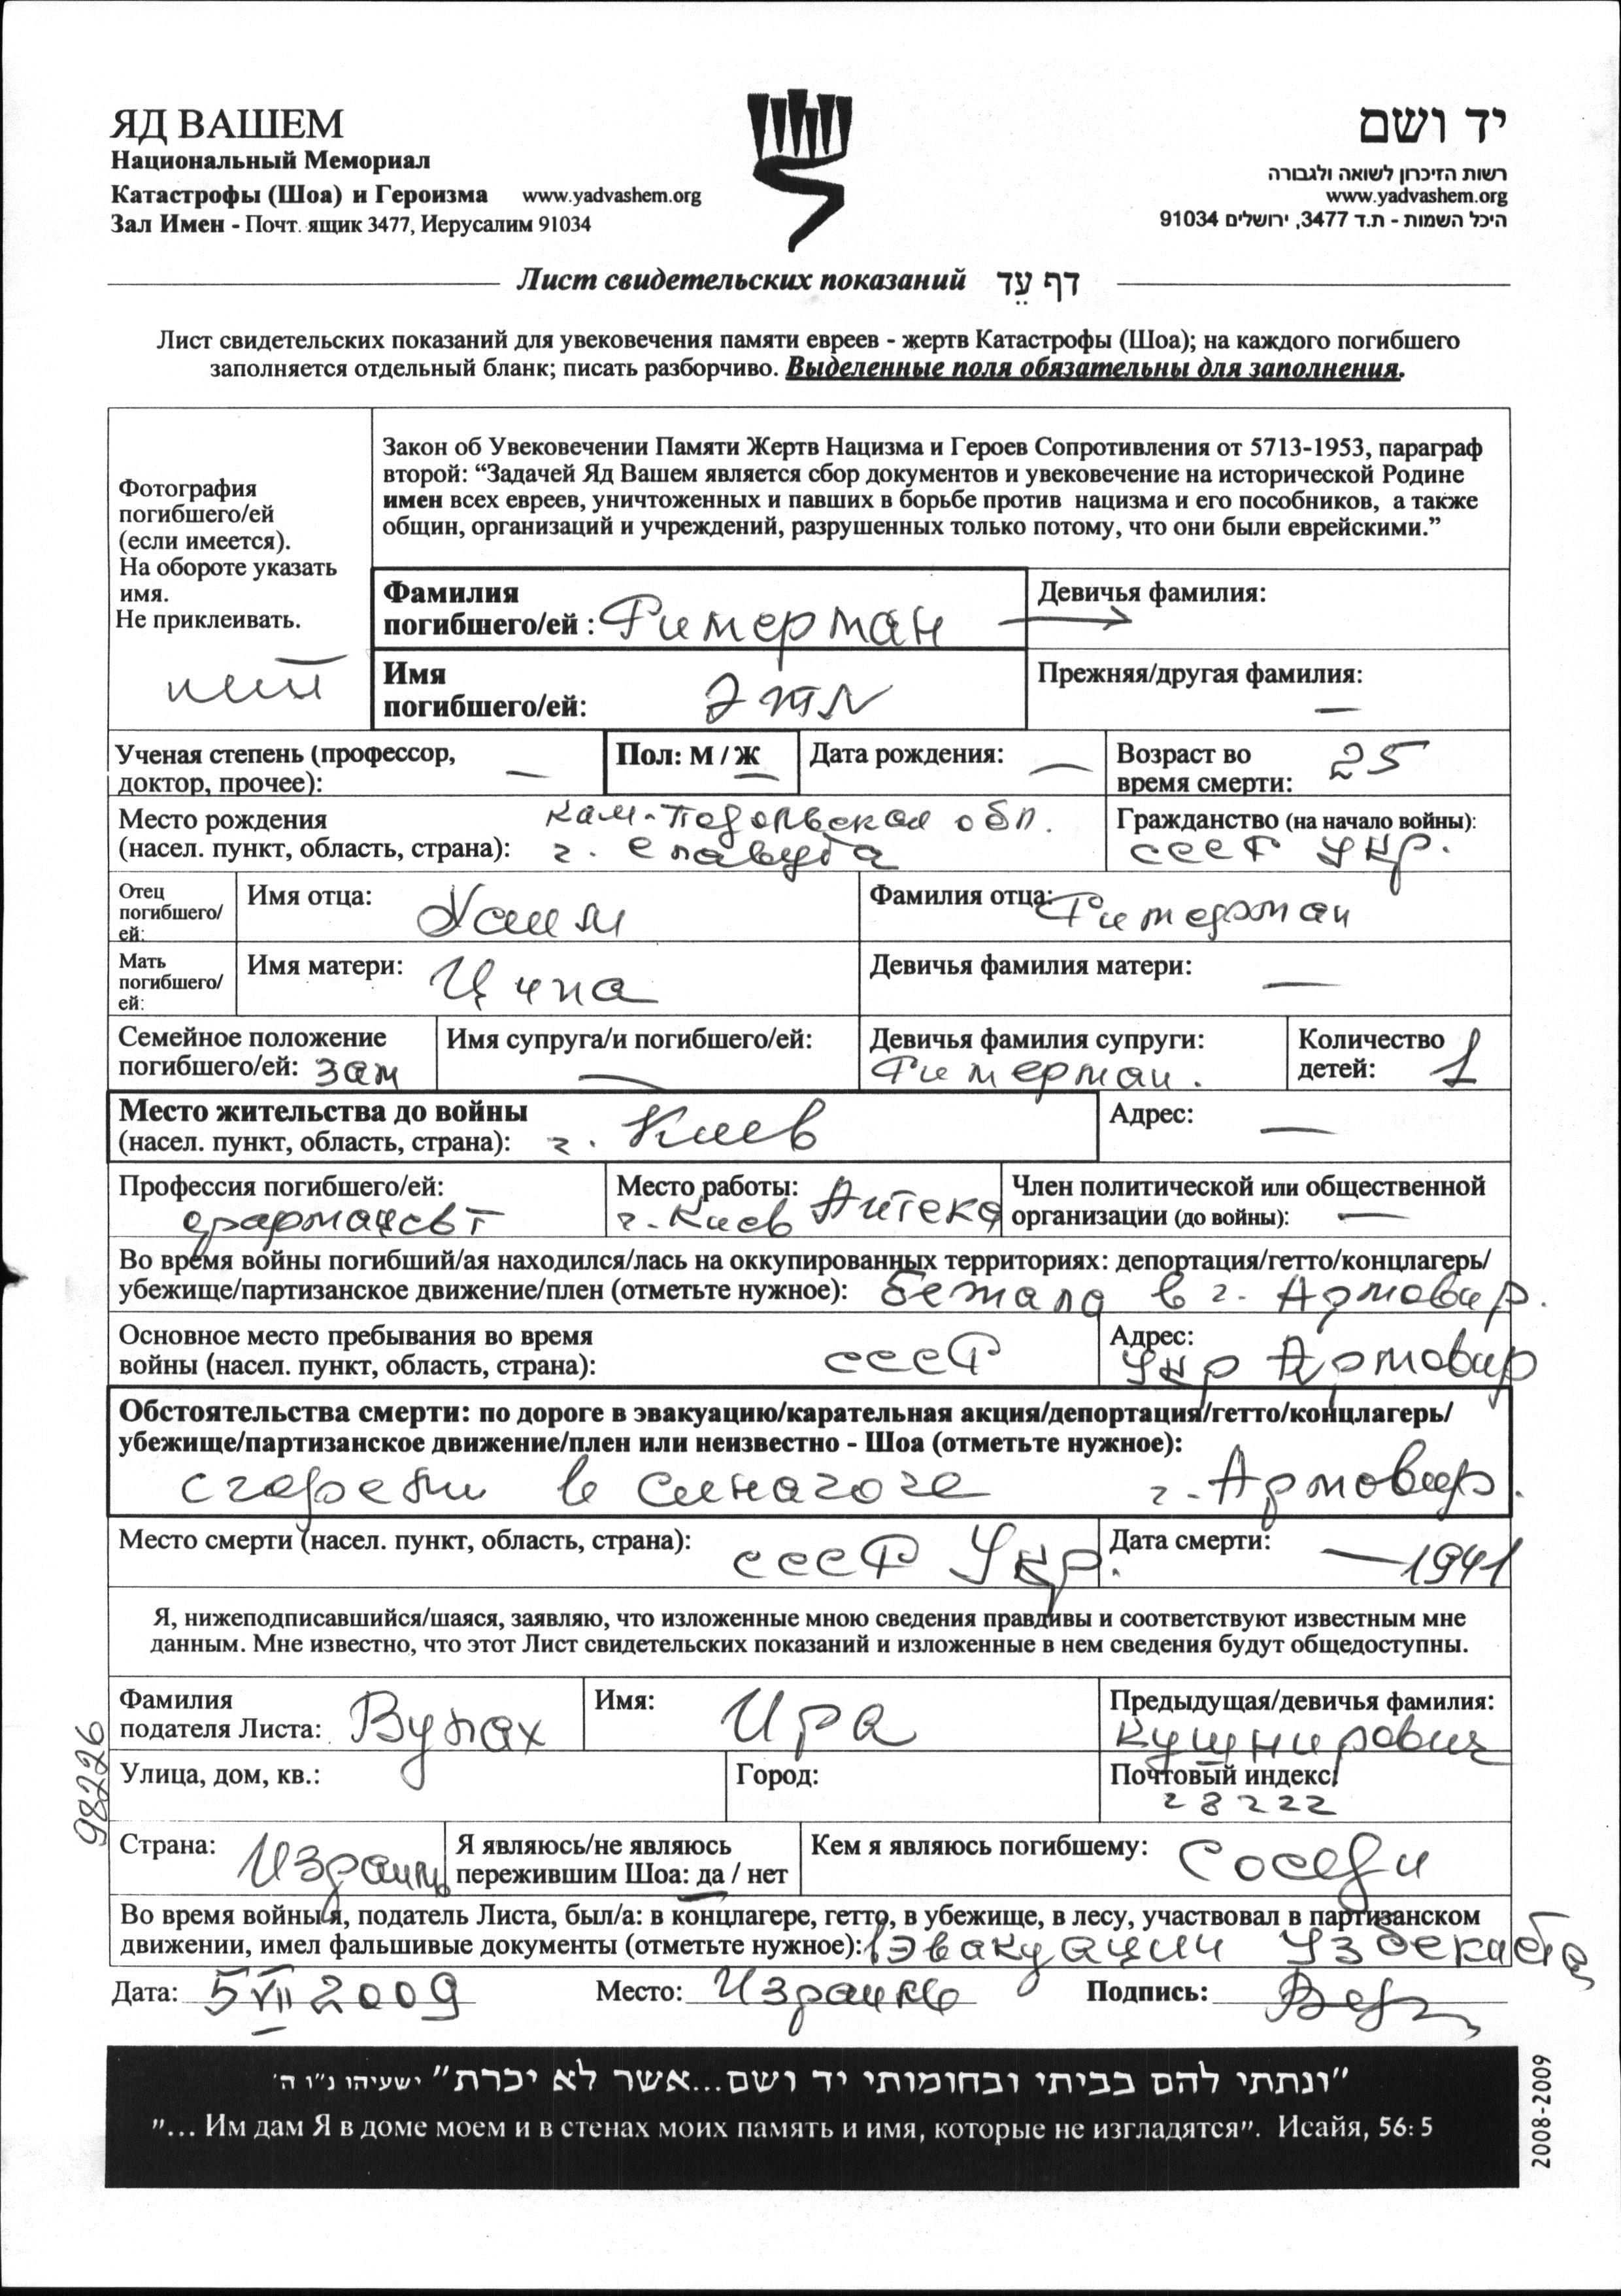 ЯД ВАШЕМ
Национальный Мемориал
Катастрофы (Шоа) и Героизма www.yadvashem.org
Зал Имен - Почт. ящик 3477, Иерусалим 91034
יד ושם
רשות הזיכרון לשואה ולגבורה
www.yadvashem.org
היכל השמות - ת.ד 3477, ירושלים 91034
Лист свидетельских показаний דף עֵד
Лист свидетельских показаний для увековечения памяти евреев - жертв Катастрофы (Шоа); на каждого погибшего
заполняется отдельный бланк; писать разборчиво. Выделенные поля обязательны для заполнения.
Фотография
погибшего/ей
(если имеется).
На обороте указать
имя.
Не приклеивать.
нет
Закон об Увековечении Памяти Жертв Нацизма и Героев Сопротивления от 5713-1953, параграф
второй: “Задачей Яд Вашем является сбор документов и увековечение на исторической Родине
имен всех евреев, уничтоженных и павших в борьбе против нацизма и его пособников, а также
общин, организаций и учреждений, разрушенных только потому, что они были еврейскими.”
Фамилия
погибшего/ей : Фитерман
Девичья фамилия:
Имя
погибшего/ей: Этл
Прежняя/другая фамилия: —
Ученая степень (профессор,
доктор, прочее): —
Пол: М / Ж
Дата рождения: —
Возраст во
время смерти: 25
Место рождения Кам-Подольская обл.
(насел. пункт, область, страна): г. Славута
Гражданство (на начало войны):
СССР Укр.
Отец
погибшего/
ей:
Имя отца: Хаим
Фамилия отца: Фитерман
Мать
погибшего/
ей:
Имя матери: Ципа
Девичья фамилия матери: —
Семейное положение
погибшего/ей: зам
Имя супруга/и погибшего/ей: —
Девичья фамилия супруги:
Фитерман.
Количество
детей: 1
Место жительства до войны
(насел. пункт, область, страна): г. Киев
Адрес: —
Профессия погибшего/ей:
фармацевт
Место работы:
г. Киев Аптека
Член политической или общественной
организации (до войны): —
Во время войны погибший/ая находился/лась на оккупированных территориях: депортация/гетто/концлагерь/
убежище/партизанское движение/плен (отметьте нужное): Бежала в г. Армовир.
Основное место пребывания во время
войны (насел. пункт, область, страна): СССР
Адрес:
Укр Армовир
Обстоятельства смерти: по дороге в эвакуацию/карательная акция/депортация/гетто/концлагерь/
убежище/партизанское движение/плен или неизвестно - Шоа (отметьте нужное):
сгорели в синагоге г. Армовир.
Место смерти (насел. пункт, область, страна): СССР Укр.
Дата смерти: —1941
Я, нижеподписавшийся/шаяся, заявляю, что изложенные мною сведения правдивы и соответствуют известным мне
данным. Мне известно, что этот Лист свидетельских показаний и изложенные в нем сведения будут общедоступны.
Фамилия
подателя Листа: Вулах
Имя: Ира
Предыдущая/девичья фамилия:
Кушнирович
Улица, дом, кв.:
Город:
Почтовый индекс:
28222
98226
Страна: Израиль
Я являюсь/не являюсь
пережившим Шоа: да / нет
Кем я являюсь погибшему: Соседи
Во время войны я, податель Листа, был/а: в концлагере, гетто, в убежище, в лесу, участвовал в партизанском
движении, имел фальшивые документы (отметьте нужное): Эвакуации Узбекаста
Дата: 5 VII 2009 Место: Израиль Подпись:
"ונתתי להם בביתי ובחומותי יד ושם...אשר לא יכרת" ישעיהו נ"ו ה'
"... Им дам Я в доме моем и в стенах моих память и имя, которые не изгладятся". Исайя, 56: 5
2008-2009